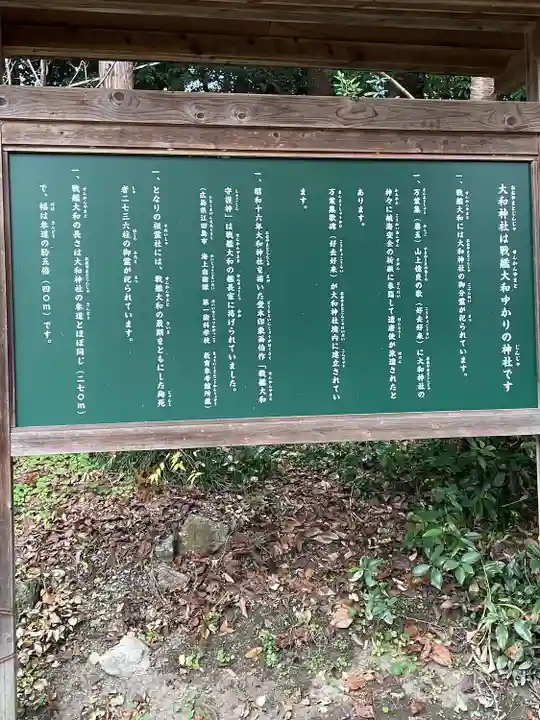 大和神社は戦艦大和ゆかりの神社です
一、戦艦大和には大和神社の御分霊が祀られています。
一、万葉集(巻五)山上憶良の歌(好去好来)に大和神社の
神々に航海安全の祈願に参詣して遣唐使が派遣されたと
あります。
万葉集歌碑(好去好来)が大和神社境内に建立されてい
ます。
一、昭和十六年大和神社を描いた堂本印象画伯作「戦艦大和
守護神」は戦艦大和の艦長室に掲げられていました。
(広島県江田島市 海上自衛隊 第一術科学校 教育参考館所蔵)
一、となりの祖霊社には、戦艦大和の最期をともにした殉死
者二七三六柱の御霊が祀られています。
一、戦艦大和の長さは大和神社の参道とほぼ同じ(二七〇m)
で、幅は参道の約五倍(四〇m)です。